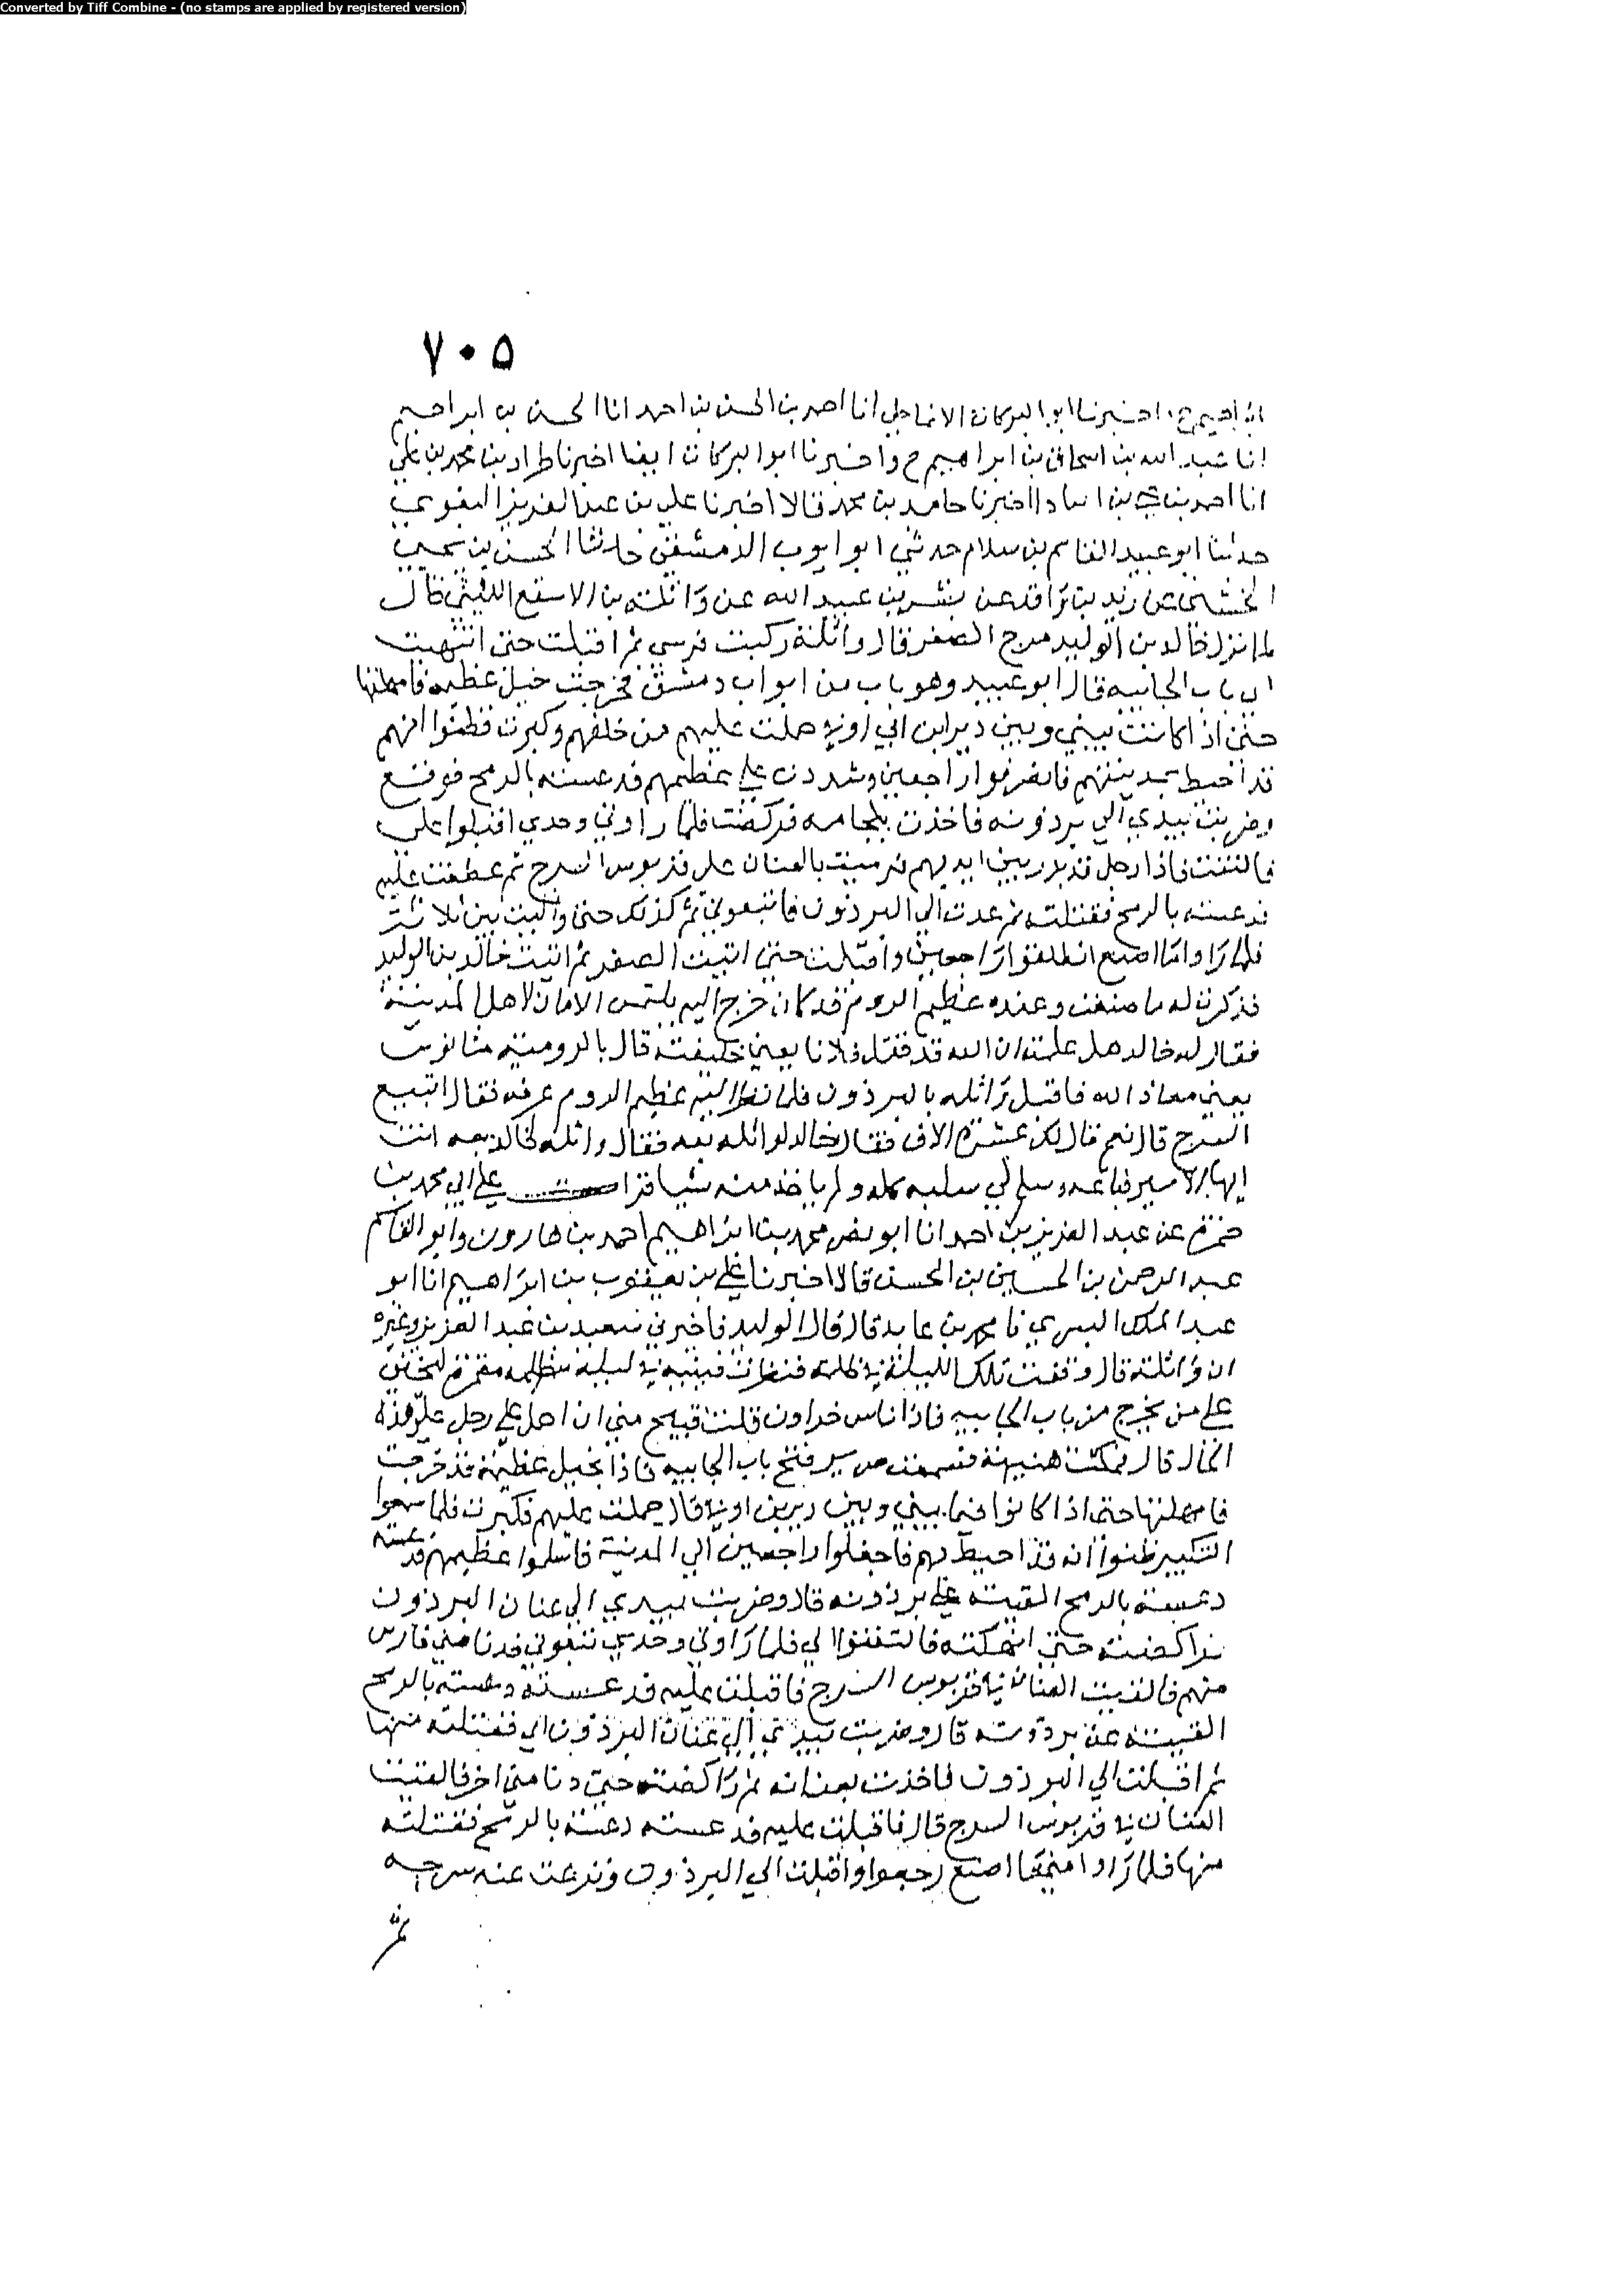 Converted by Tiff Combine - (no stamps are applied by registered version)
٧٠٥
ابراهيم ح اخبرنا ابو البركات الانماطي انا احمد بن الحسن بن احمد انا الحسن بن ابراهيم
انا عبد الله بن اسحاق بن ابراهيم ح واخبرنا ابو البركات ايضا اخبرنا طراد بن محمد بن علي
انا احمد بن علي بن اخبرنا حامد بن محمد قالا اخبرنا علي بن عبد العزيز البغوي
حدثنا ابو عبيد القاسم بن سلام حدثني ابو ايوب الدمشقي حدثنا الحسن بن يحيى
الخشني عن زيد بن واقد عن بشر بن عبيد الله عن واثلة بن الاسقع الليثي قال
لما نزل خالد بن الوليد مرج الصفر قال واثلة ركبت فرسي ثم اقبلت حتى انتهيت
الى باب الجابيه قال ابو عبيد وهو باب من ابواب دمشق فخرجت خيل عظيمه فامهلتها
حتى اذا كانت بيني وبين دير ابن ابي اوفي حملت عليهم من خلفهم وكبرت فظنوا انهم
قد احيط بمدينتهم فانصرفوا راجعين وشددت علي عظيمهم فدعسته بالرمح فوقع
وضربت بيدي الي برذونه فاخذت بلجامه فركضت فلما راوني وحدي اقبلوا علي
فالتفت فاذا رجل قد بدر بين ايديهم فرميت بالعنان على قربوس السرج ثم عطفت عليه
فدعسته بالرمح فقتلته ثم عدت الي البرذون فاتبعوني ثم كذلك حتى واليت بين ثلاثة
فلما راوا ما اصنع انطلقوا راجعين واقبلت حتى اتيت الصفر ثم اتيت خالد بن الوليد
فذكرت له ما صنعت وعنده عظيم الروم قد كان خرج اليه يلتمس الامان لاهل المدينة
فقال له خالد هل علمت ان الله قد قتل فلانا يعني خليفته قال بالرومية متانوس
يعني معاذ الله فاقبل واثله بالبرذون فلما نظر اليه عظيم الروم عرفه فقال اتبيع
السرج قال نعم قال لك عشرة الاف فقال خالد لواثله بعه فقال واثله لخالد بعه انت
ايها الامير فباعه وسلم لي سلبه كله ولم ياخذ منه شيا قرات علي ابي محمد بن
حمزه عن عبد العزيز بن احمد انا ابو نصر محمد بن ابراهيم احمد بن هارون وابو القاسم
عبد الرحمن بن الحسين بن الحسن قالا اخبرنا علي بن يعقوب بن ابراهيم انا ابو
عبد الملك البسري نا محمد بن عايد قال قال الوليد فاخبرني سعيد بن عبد العزيز وغيره
ان واثلة قال وقفت تلك الليلة في
علي من يخرج من باب الجابيه فاذا ناس قلت قبيح مني ان احمل علي رجل علي هذه
الحال قال فمكثت هنيهة فسمعت صرير فتح باب الجابيه فاذا بخيل عظيمة قد خرجت
فامهلتها حتى اذا كانوا فيما بيني وبين دير بن اوفي قال حملت عليهم فكبرت فلما سمعوا
التكبير ظنوا انه قد احيط بهم فاجفلوا راجعين الي المدينة فاسلموا عظيمهم فدعسته
دعسة بالرمح القيته علي برذونه قال وضربت بيدي الي عنان البرذون
فراكضته حتى انهكته فالتفتوا الي فلما راوني وحدي تبعوني فدنا مني فارس
منهم فالقيت العنان في قربوس السرج فاقبلت عليه فدعسته دعسته بالرمح
القيته عن برذونه قال وضربت بيدي الي عنان البرذون الي فقتلته منها
ثم اقبلت الي البرذون فاخذت بعنانه ثم راكضته حتي دنا مني اخر فالقيت
العنان في قربوس السرج قال فاقبلت عليه فدعسته دعسة بالرمح فقتلته
منها فلما راوا مني ما اصنع رجعوا واقبلت الي البرذون ونزعت عنه سرجه
ثم